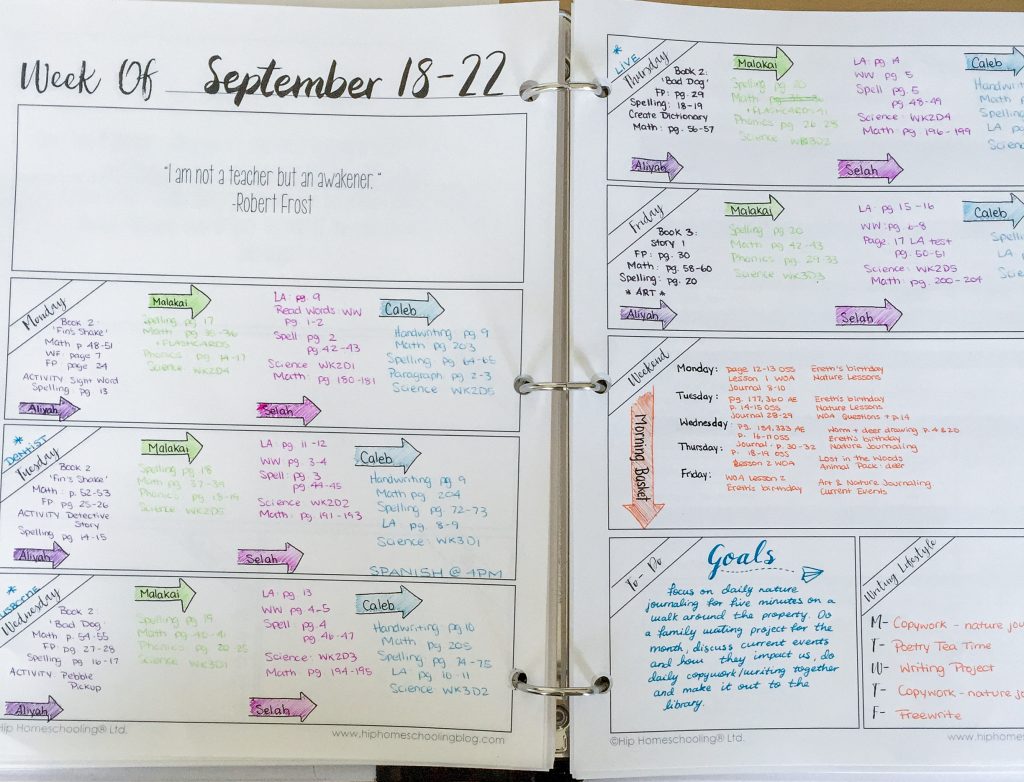 Week Of September 18-22
"I am not a teacher but an awakener."
-Robert Frost
Monday
Book 2:
Math p. 48-51
WF: page 7
FP: page 24
ACTIVITY Sight Word
Spelling pg. 13
Aliyah
Malakai
Spelling pg. 17
Math pg 35-36
+FLASHCARDS
Phonics pg. 14-17
Science WK2D4
LA: pg. 9
Read Words: WW
pg 1-2
Spell pg 2
pg 42-43
Science WK2D1
Math: pg 180-181
Selah
Caleb
Handwriting pg. 9
Math pg. 203
Spelling pg. 64-65
Paragraph pg. 2-3
Science WK2D5
* DENTIST
Tuesday
Book 2
Math: p. 52-53
FP: pg 25-26
ACTIVITY Detective
Story
Spelling pg 14-15
Aliyah
Malakai
Spelling pg 18
Math pg 37-39
Phonics pg. 18-19
Science WK2D5
LA: pg 11-12
WW: pg. 3-4
Spell: pg. 3
pg 44-45
Science: WK2D2
Math: pg 191-193
Selah
Caleb
Handwriting pg. 9
Math pg. 204
Spelling pg 72-73
LA: pg. 8-9
Science: WK3D1
SPANISH @ 4PM
*
Wednesday
Book 2:
'Bad Dog'
Math p. 54-55
FP: pg. 27-28
Spelling pg 16-17
ACTIVITY Pebble
Pickup
Aliyah
Malakai
Spelling pg 19
Math pg 40-41
Phonics pg 20-25
Science WK3D1
LA: pg 13
WW pg 4-5
Spell: pg. 4
pg 46-47
Science: WK2D3
Math: pg 194-195
Selah
Caleb
Handwriting pg 10
Math pg 205
Spelling: pg 74-75
LA: pg 10-11
Science: WK3D2
Hip Homeschooling® Ltd.
www.hiphomeschoolingblog.com
* LIVE
Thursday
Book 2:
'Bad Dog'
FP: pg 29
Spelling: 18-19
Create Dictionary
Math: pg. 56-57
Aliyah
Malakai
Spelling pg 20
Math pg
+FLASHCARDS
Phonics pg. 26-28
Science WK3D2
LA: pg 14
WW pg 5
Spell pg. 5
pg 48-49
Science: WK2D4
Math pg 196-199
Selah
Caleb
Handwriti
Math p
Spelling
LA pg
Scienc
Friday
Book 3:
Story 1
FP: pg. 30
Math: pg. 58-60
Spelling: pg. 20
* ART *
Aliyah
Malakai
Spelling pg 20
Math pg 42-43
Phonics pg. 29-33
Science WK3D3
LA: pg 15-16
WW: pg. 6-8
Page 17 LA test
pg 50-51
Science: WK2D5
Math: pg. 200-204
Selah
Caleb
Spelli
LA
Scie
Weekend
Morning Basket
Monday: page 12-13 OSS Ereth's birthday
Lesson 1 WOA Nature Lessons
Journal 8-10
Tuesday: pg. 177, 360 AE Ereth's birthday
p. 14-15 OSS Nature Lessons
Journal 28-29 WOA Questions + p.14
Wednesday: pg. 184, 333 AE Worm + deer drawing p. 4 & 20
p. 16-17 OSS Ereth's birthday
Thursday: Journal: p. 30-32 Nature Journaling
p. 18-19 OSS Lost in the Woods
Lesson 2 WOA Animal Pack: deer
Friday: WOA Lesson 2 Art & Nature Journaling
Ereth's birthday Current Events
To-Do
Goals
Focus on daily nature
journaling for five minutes on a
walk around the property. Do
a family writing project for the
month, discuss current events
and how they impact us, do
daily copywork/writing together
and make it out to the
library.
Writing Lifestyle
M- Copywork - nature jou
T- Poetry Tea Time
W- Writing Project
T- Copywork - nature jo
F- Freewrite
©Hip Homeschooling® Ltd.
www.hiphomes